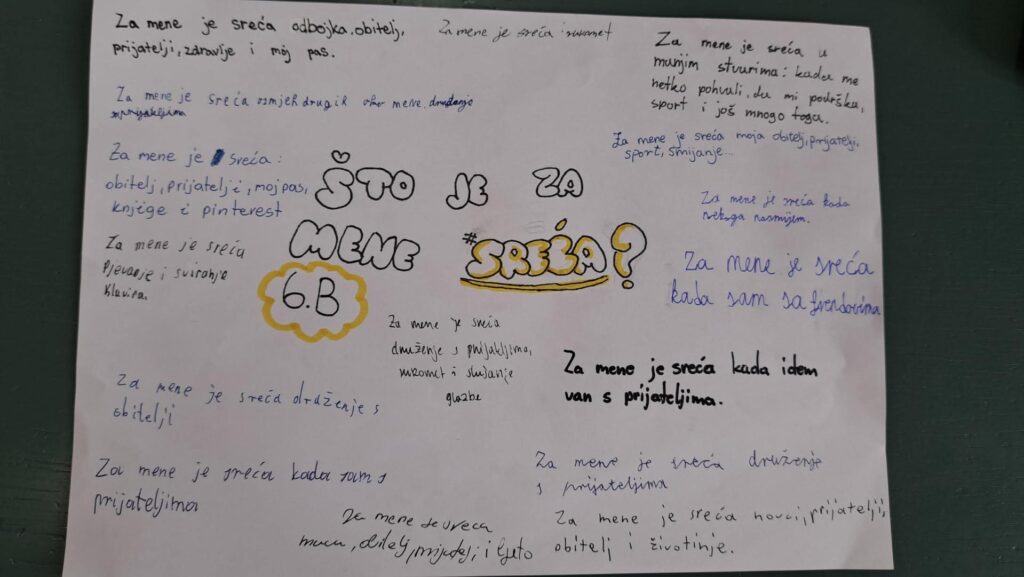 Za mene je sreća odbojka, obitelj,
prijatelji, zdravlje i moj pas.
Za mene je sreća rukomet
Za mene je sreća u
manjim stvarima: kada me
netko pohvali, da mi podršku,
sport i još mnogo toga.
Za mene je sreća osmjeh drugih oko mene, druženje
s prijateljima
Za mene je sreća moja obitelj, prijatelji,
sport, smijanje...
Za mene je sreća:
obitelj, prijatelji, moj pas,
knjige i pinterest
ŠTO JE ZA
MENE #SREĆA?
6.B
Za mene je sreća kada
nekoga nasmijem.
Za mene je sreća
Pjevanje i sviranje
klavira.
Za mene je sreća
kada sam sa frendovima
Za mene je sreća
druženje s prijateljima,
rukomet i slušanje
glazbe
Za mene je sreća kada idem
van s prijateljima.
Za mene je sreća druženje s
obitelji
Za mene je sreća kada sam s
prijateljima
Za mene je sreća druženje
s prijateljima
Za mene je sreća
obitelj, prijatelji, i ljeto
Za mene je sreća novci, prijatelji,
obitelj i životinje.